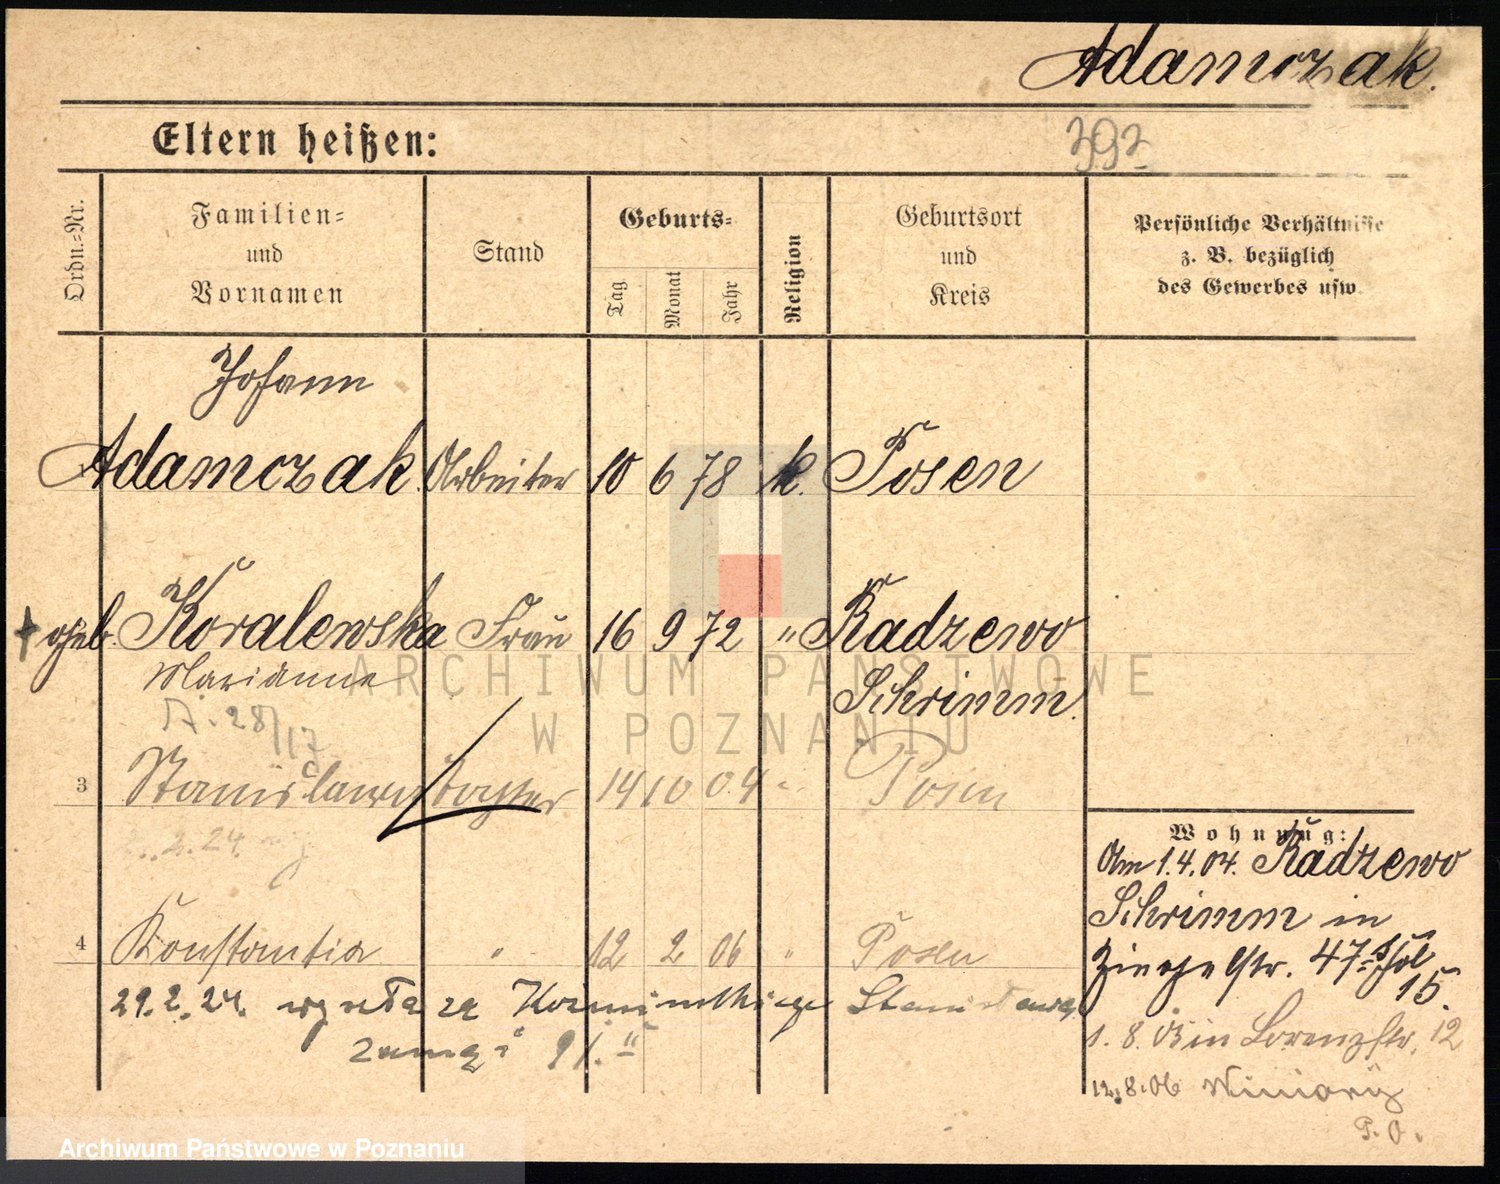 Adamczak.
Eltern heißen:
392
Ordn.=Nr.
Familien=
und
Vornamen
Stand
Geburts=
Tag
Monat
Jahr
Religion
Geburtsort
und
Kreis
Persönliche Verhältnisse
z. B. bezüglich
des Gewerbes usw.
Johann
Adamczak. Arbeiter 10 6 78 k. Posen
+ geb. Koralewska Frau 16 9 72 " Radzewo
Marianna Schrimm.
A. 28/17
3 Stanislawa Tochter 14 10 04 " Posen
2.24.
4 Konstantia " 12 2 06 " Posen
29.2.24. wyszła za Stanisława
91.
Wohnung:
Am 1.4.04. Radzewo
Schrimm in
47
15.
1. 8. 05 in Lorenzstr. 12
12.8.06 Winiary
P. O.
ARCHIWUM PAŃSTWOWE
W POZNANIU
Archiwum Państwowe w Poznaniu